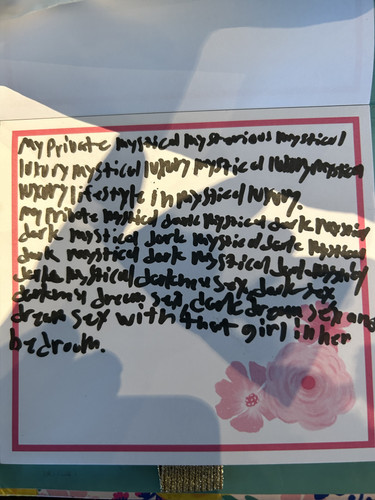 my private mystical mysterious mystical
luxury mystical luxury mystical luxury mystical
luxury lifestyle in mystical luxury.
my private mystical dark mystical dark mystical
dark mystical dark mystical dark mystical
dark mystical dark mystical dark mystical
dark mystical darkness sex, dark sex,
dream sex, dark dream sex and
dream sex with that girl in her
bedroom.